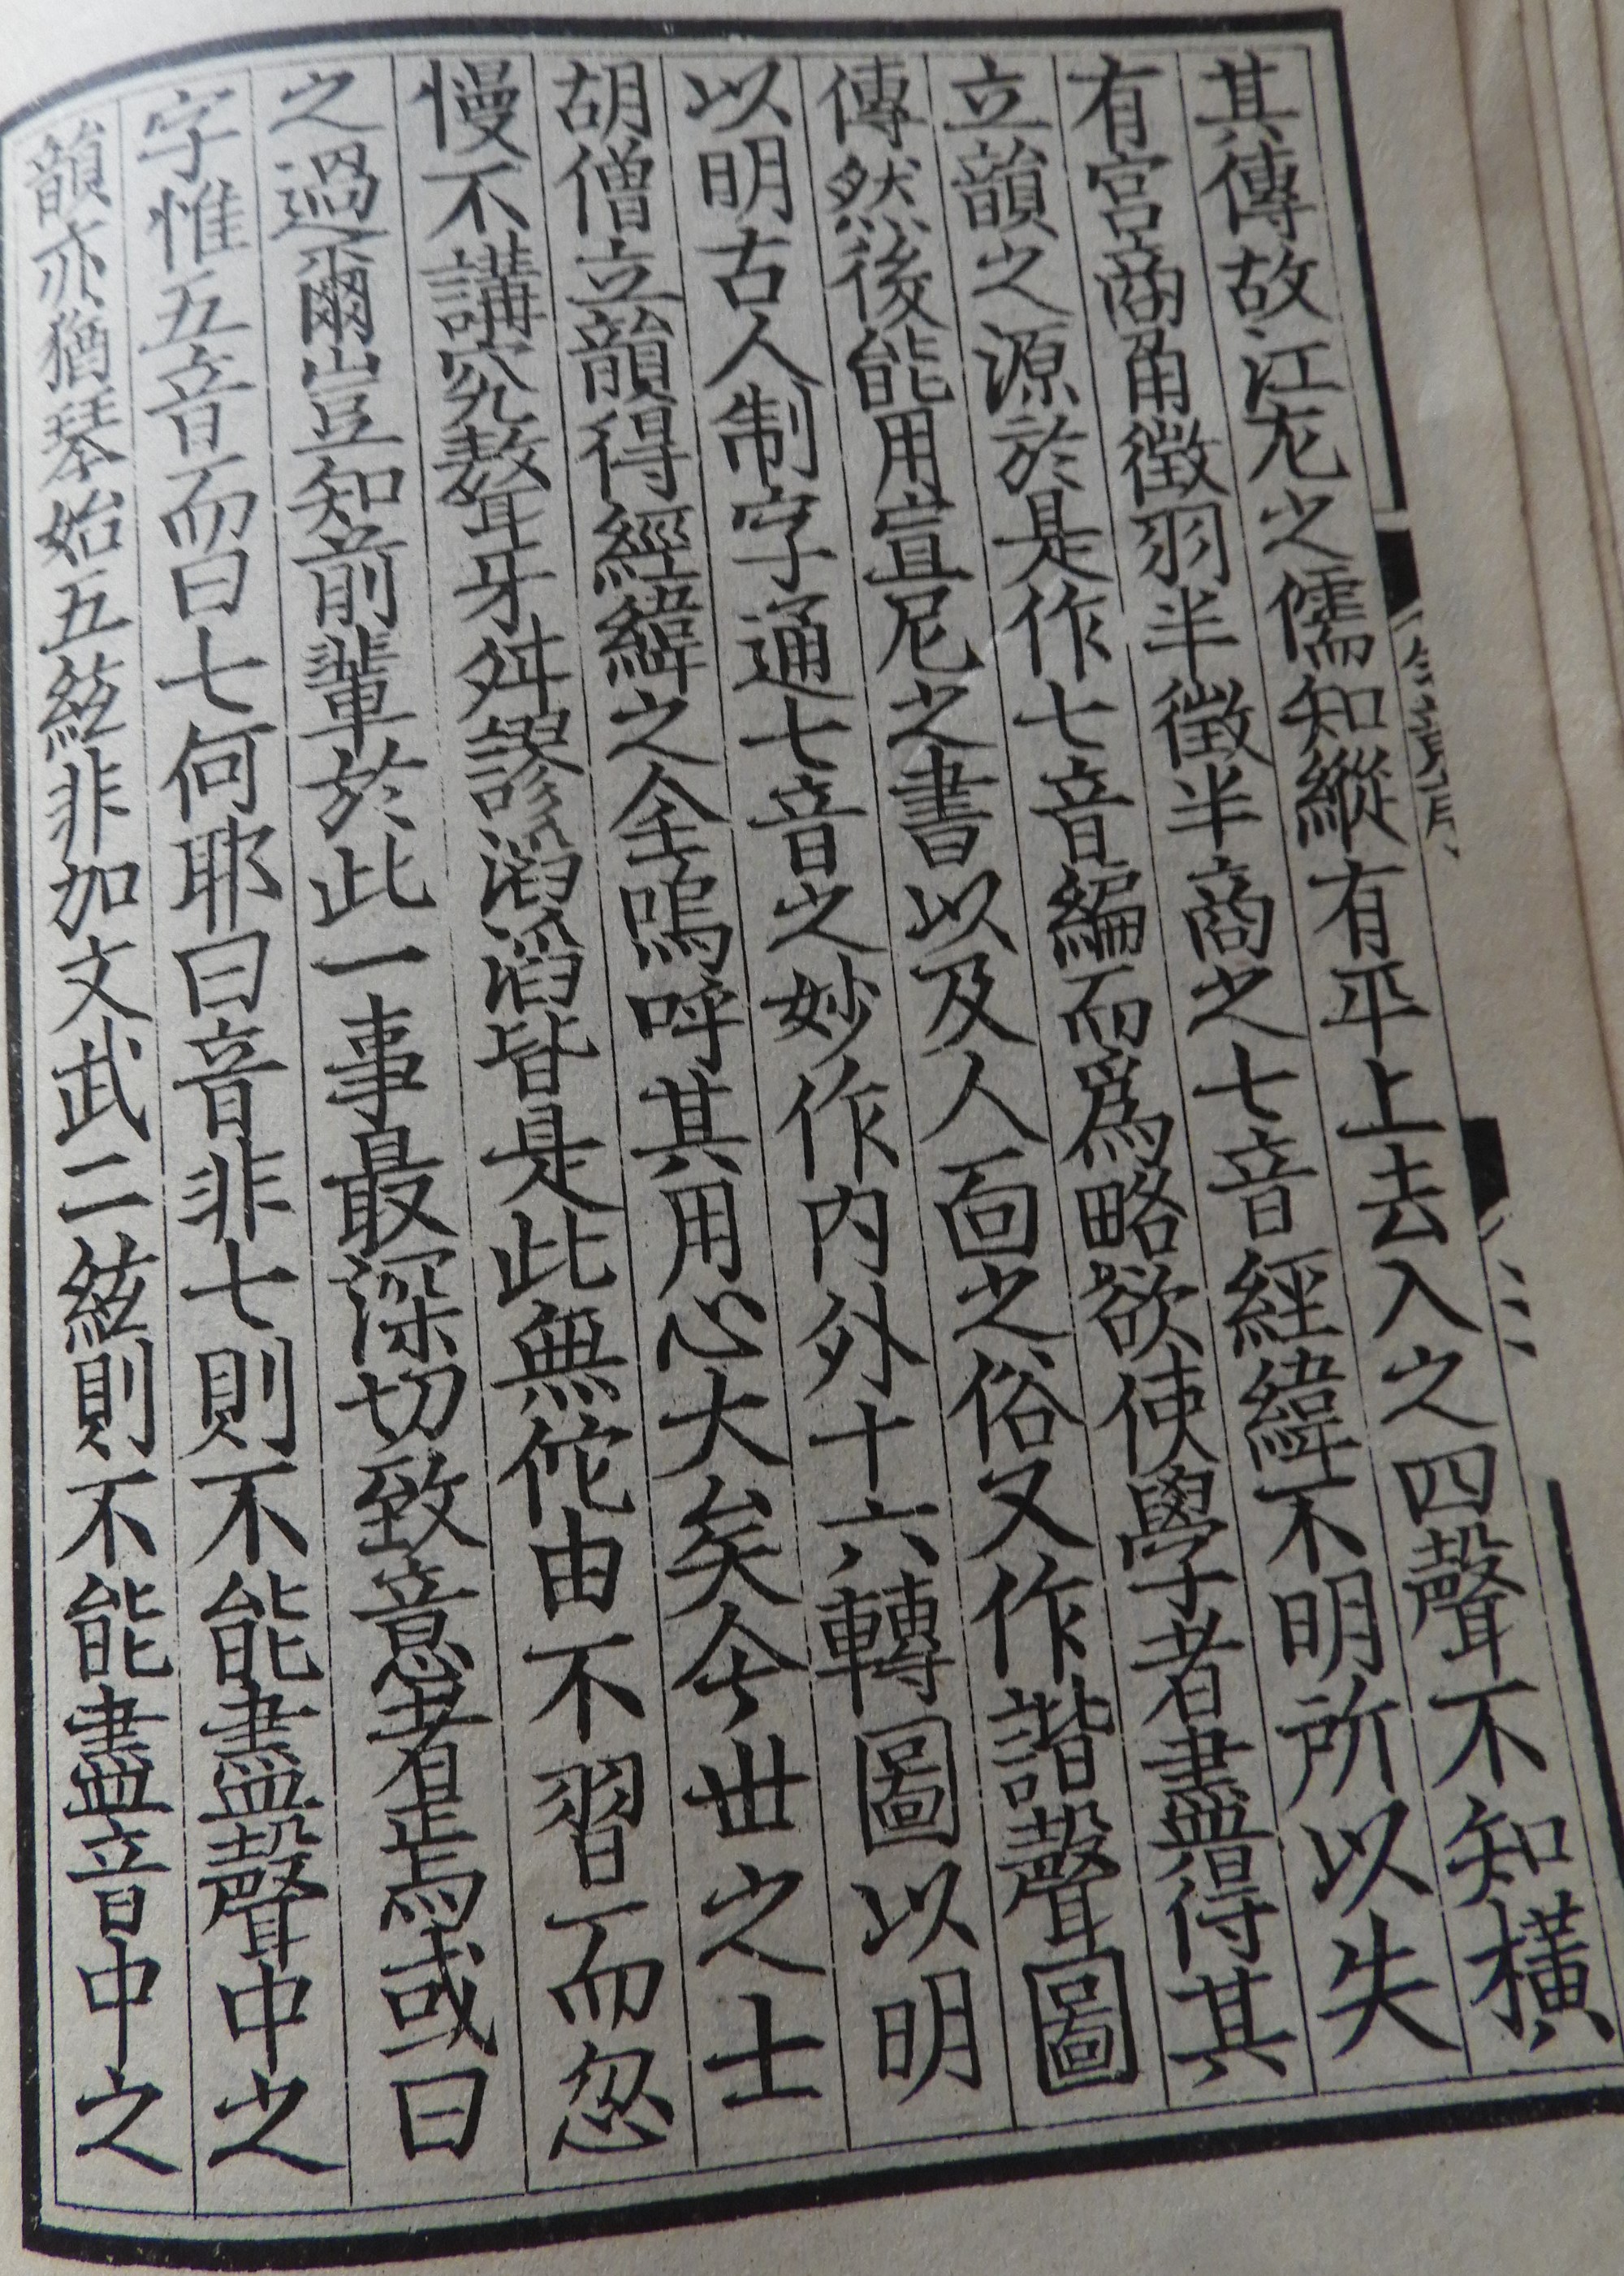 其傳故江左之儒知縱有平上去入之四聲不知橫
有宮商角徵羽半徵半商之七音經緯不明所以失
立韻之源於是作七音編而為略欲使學者盡得其
傳然後能用宣尼之書以及人面之俗又作諧聲圖
以明古人制字通七音之妙作內外十六轉圖以明
胡僧立韻得經緯之全嗚呼其用心大矣今世之士
慢不講究聱牙舛謬滔滔皆是此無佗由不習而忽
之過爾豈知前輩於此一事最深切致意者焉或曰
字惟五音而曰七何耶曰音非七則不能盡聲中之
韻亦猶琴始五絃非加文武二絃則不能盡音中之